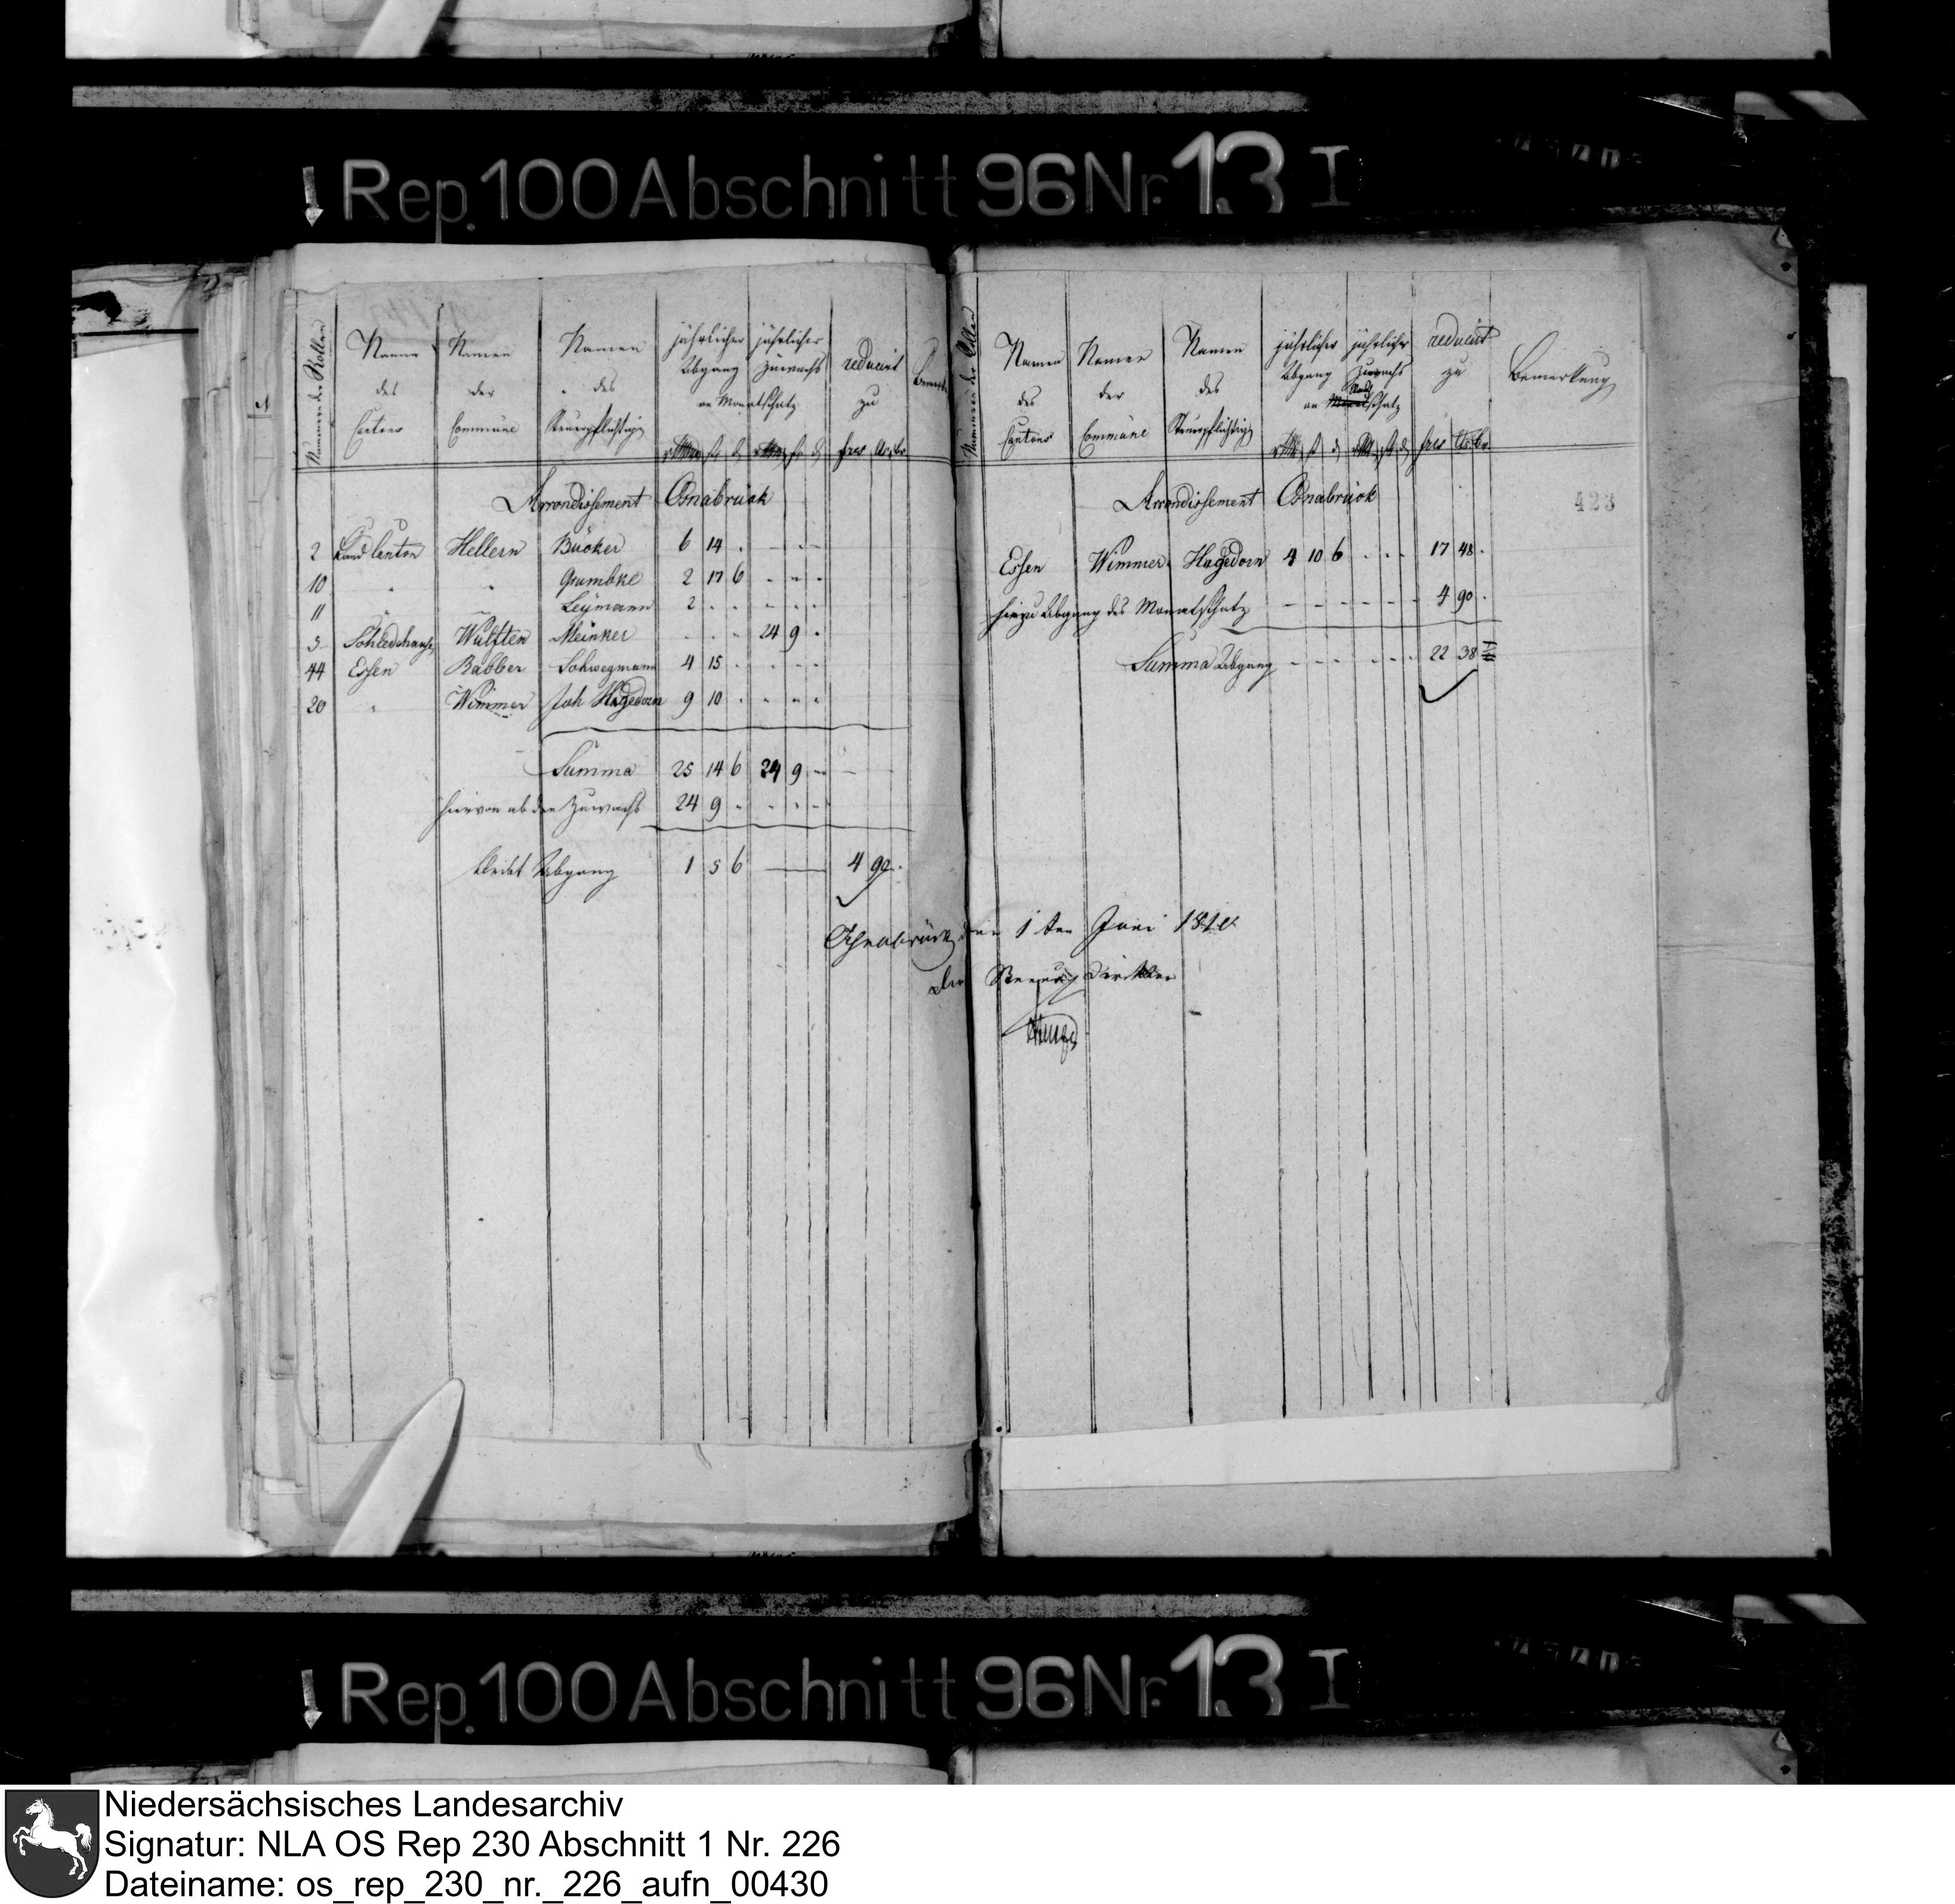 Rep. 100 Abschnitt 96 Nr. 13 I
Nummern der Rollen
Namen des Cantons
Namen der Commüne
Namen des Steuerpflichtigen
jährlicher Abgang
jährlicher Zuwachs
an Monatschatz
reducirt zu
frcs
Arrondissement Osnabrück
2 Land Canton Hellern Bücker 6 14 . - - -
10 " " Grumbke 2 17 6 - - -
11 Leymann 2 . . - - -
5 Schledehausen Wulften Meinker . . . 24 9 .
44 Essen Babber Schwegmann 4 15 . . . .
20 " Wimmer Joh Hagedorn 9 10 . . . .
Summa 25 14 6 24 9 - -
hiervon ab den Zuwachs 24 9 - - - -
bleibt Abgang 1 5 6 — 4 90.
Nummern der Rollen
Namen des Cantons
Namen der Commüne
Namen des Steuerpflichtigen
jährlicher Abgang
jährlicher Zuwachs
an schatz
reducirt zu
Bemerkung
frcs
Arrondissement Osnabrück
423
Essen Wimmer Hagedorn 4 10 6 . . . 17 48.
hierzu Abgang des Monatschatz - - - - - - 4 90.
Summa Abgang - - - - - - 22 38
Osnabrück den 1ten Juni
der Steuer Direktor
Rep. 100 Abschnitt 96 Nr. 13 I
Niedersächsisches Landesarchiv
Signatur: NLA OS Rep 230 Abschnitt 1 Nr. 226
Dateiname: os_rep_230_nr._226_aufn_00430